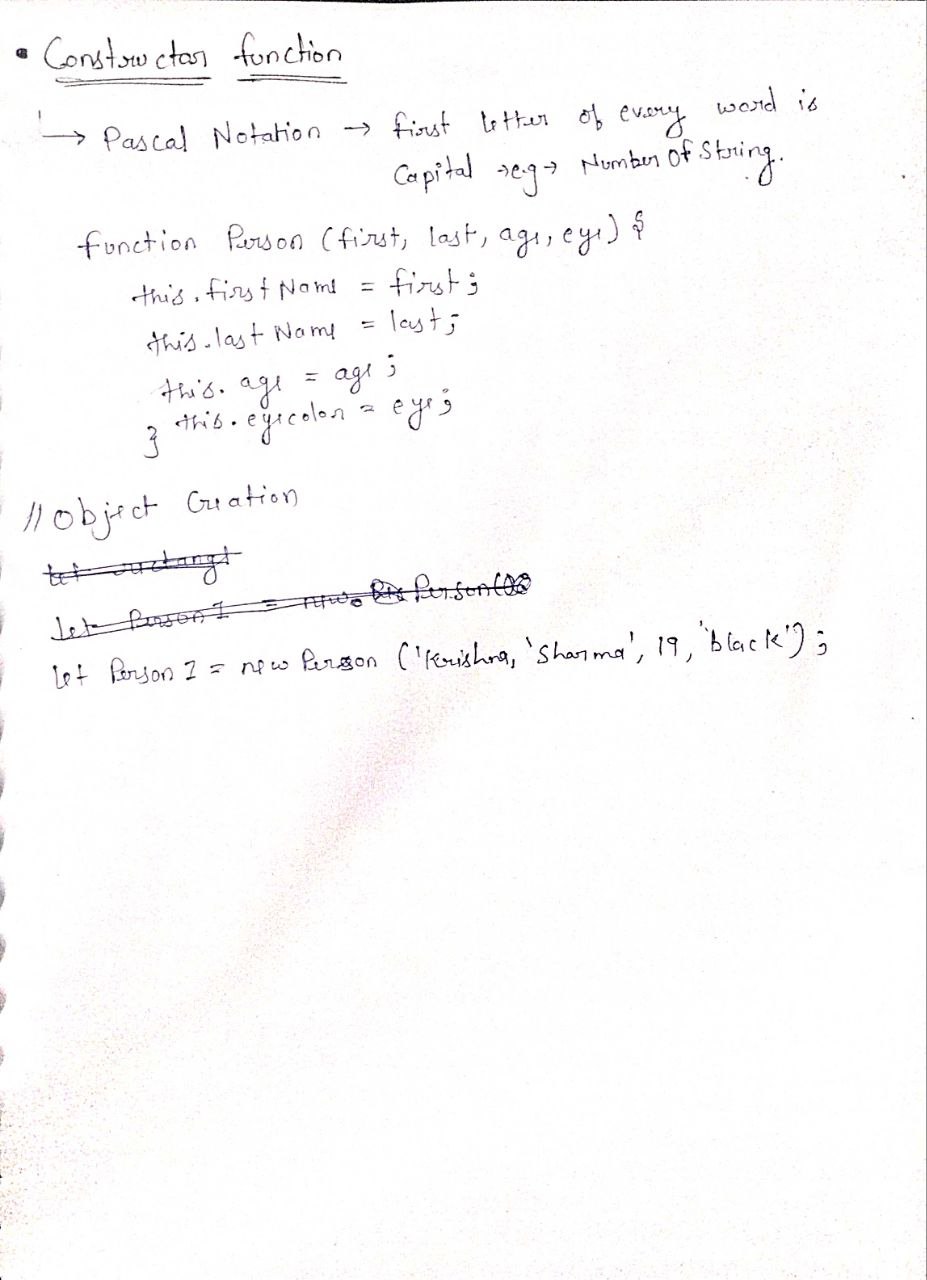 • Constructor function
→ Pascal Notation → first letter of every word is
Capital → e.g → Number Of String.
function Person (first, last, age, eye) {
this.firstName = first;
this.lastName = last;
this.age = age;
this.eyecolor = eye;
}
// Object Creation
let rectangl
let Person1 = new Person(
let Person1 = new Person ('Krishna, 'Sharma', 19, 'black');